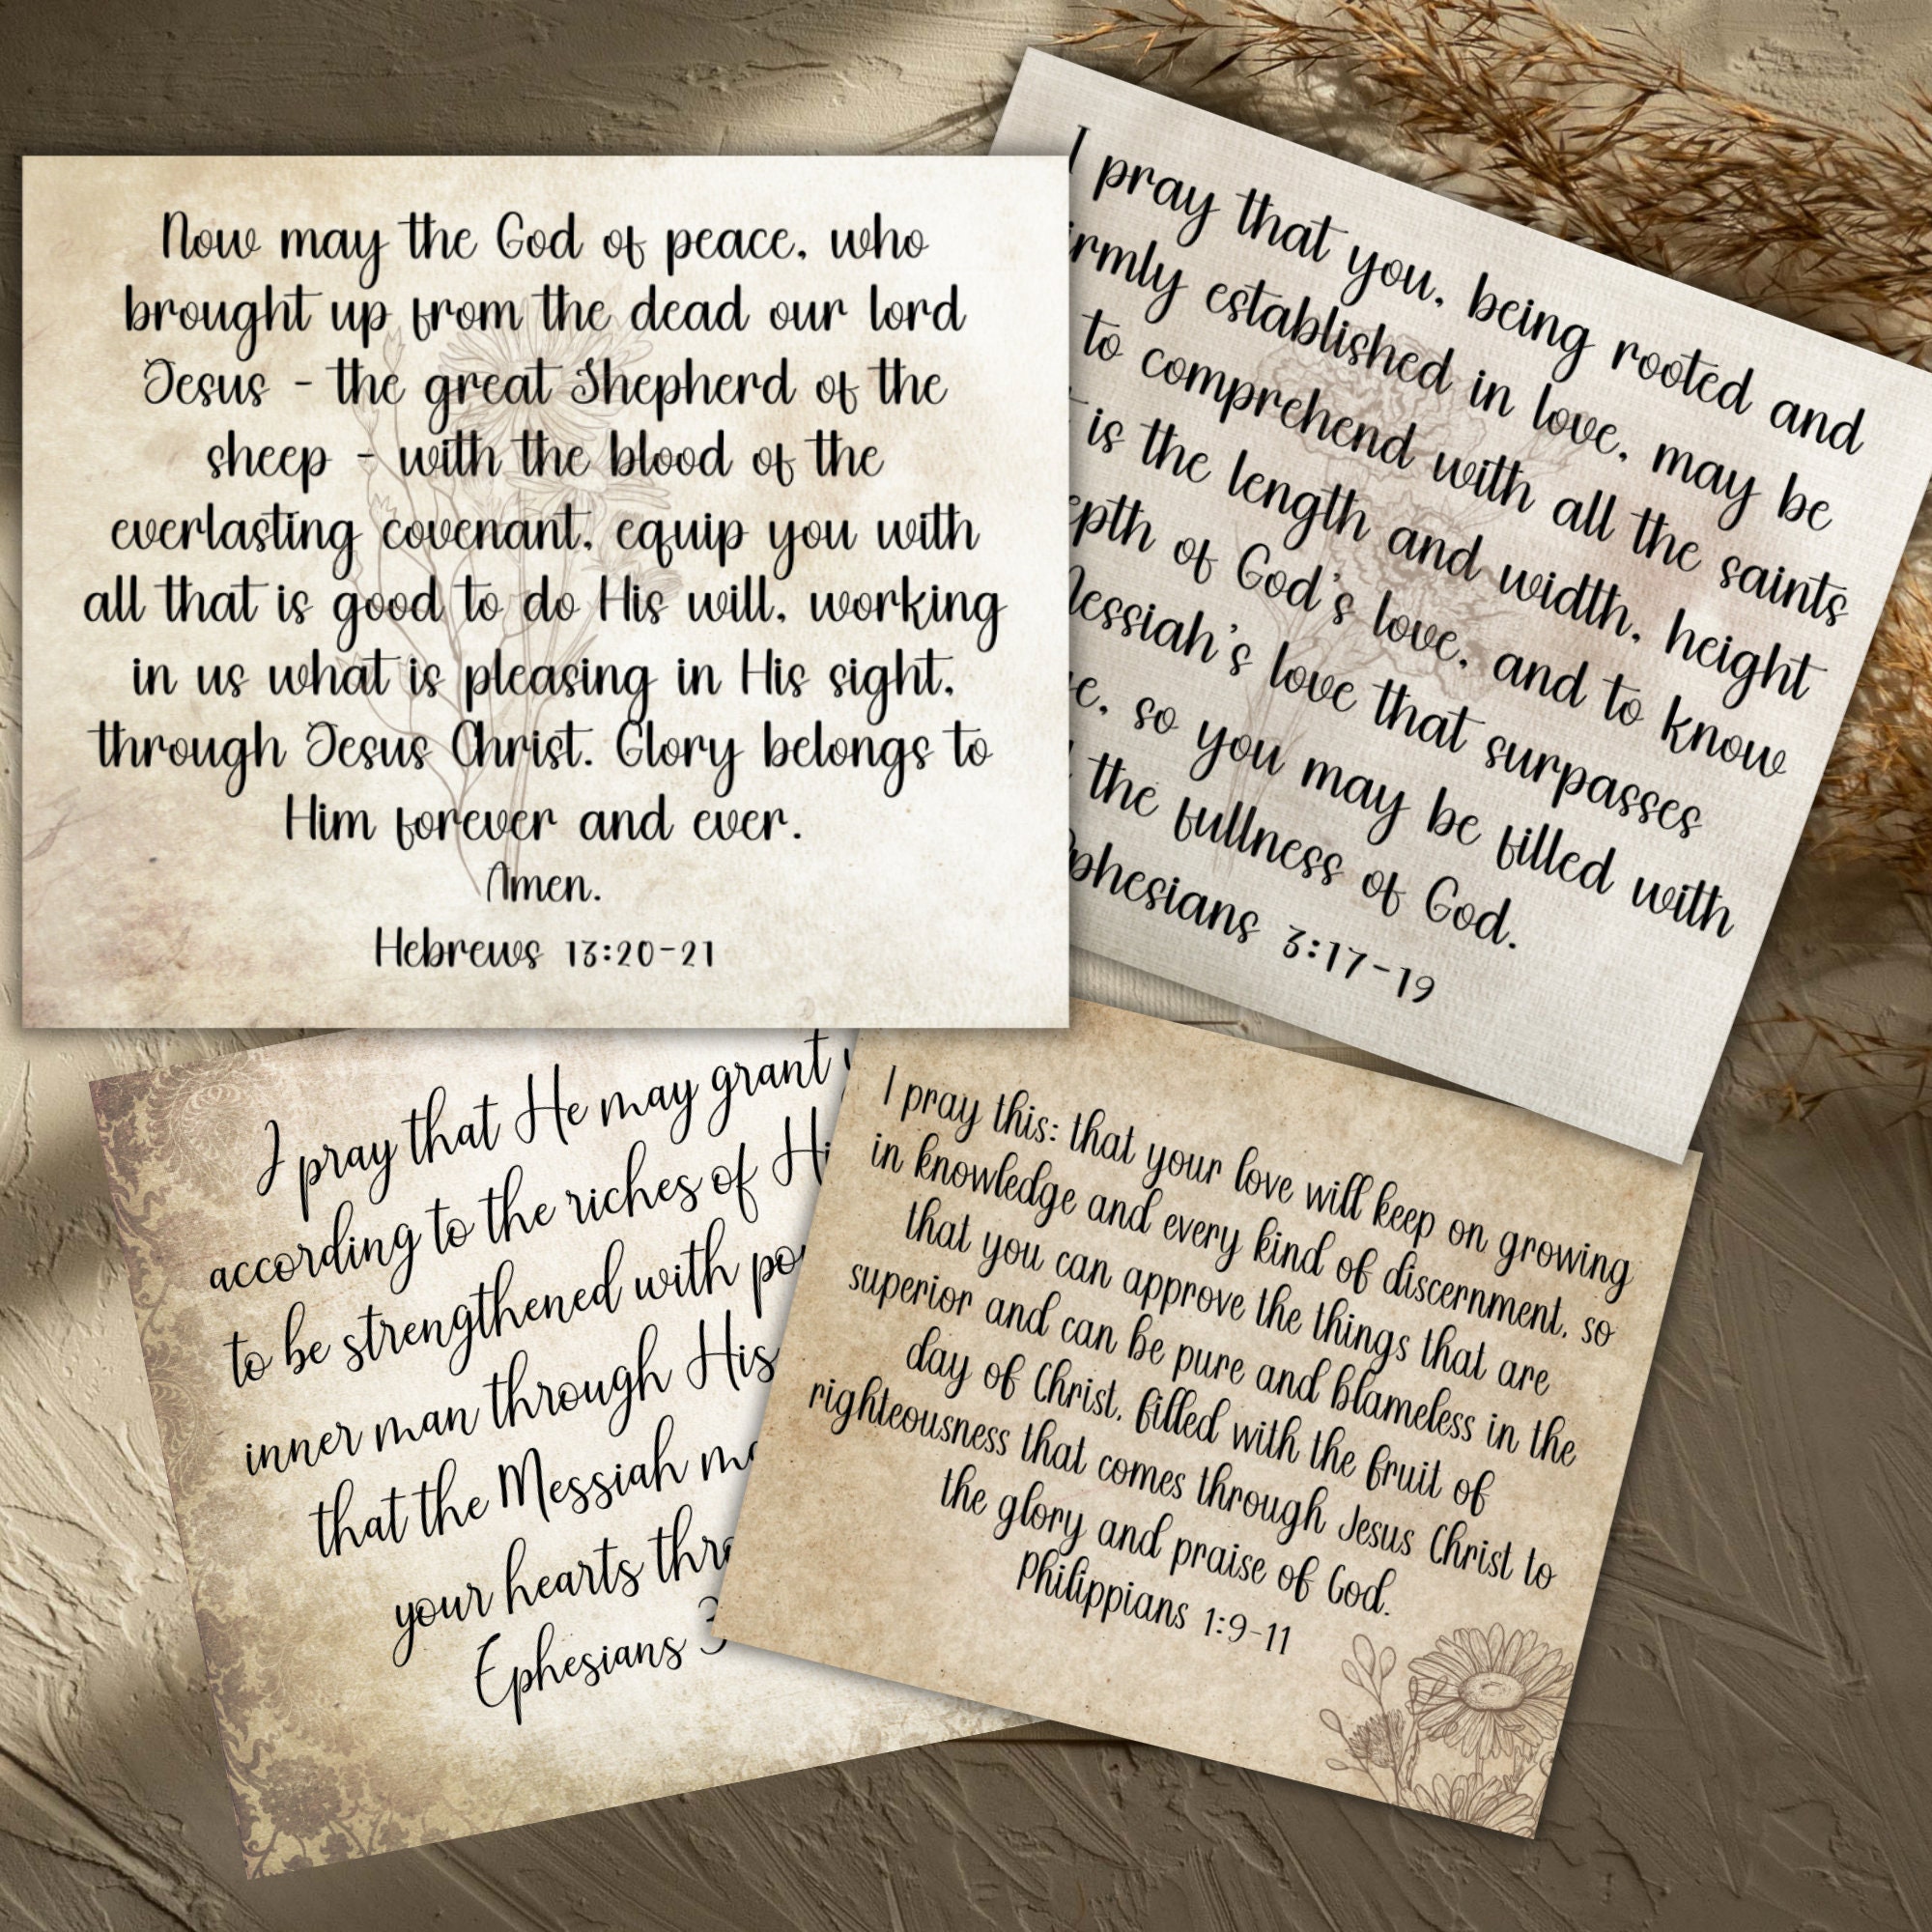 Now may the God of peace, who
brought up from the dead our lord
Jesus - the great Shepherd of the
sheep - with the blood of the
everlasting covenant, equip you with
all that is good to do His will, working
in us what is pleasing in His sight,
through Jesus Christ. Glory belongs to
Him forever and ever.
Amen.
Hebrews 13:20-21
I pray that you, being rooted and
established in love, may be
to comprehend with all the saints
is the length and width, height
of God's love, and to know
love that surpasses
so you may be filled with
the fullness of God.
3:17-19
I pray that He may grant
according to the riches of
to be strengthened with
inner man through His
that the Messiah
your hearts
Ephesians 3
I pray this: that your love will keep on growing
in knowledge and every kind of discernment, so
that you can approve the things that are
superior and can be pure and blameless in the
day of Christ, filled with the fruit of
righteousness that comes through Jesus Christ to
the glory and praise of God.
Philippians 1:9-11